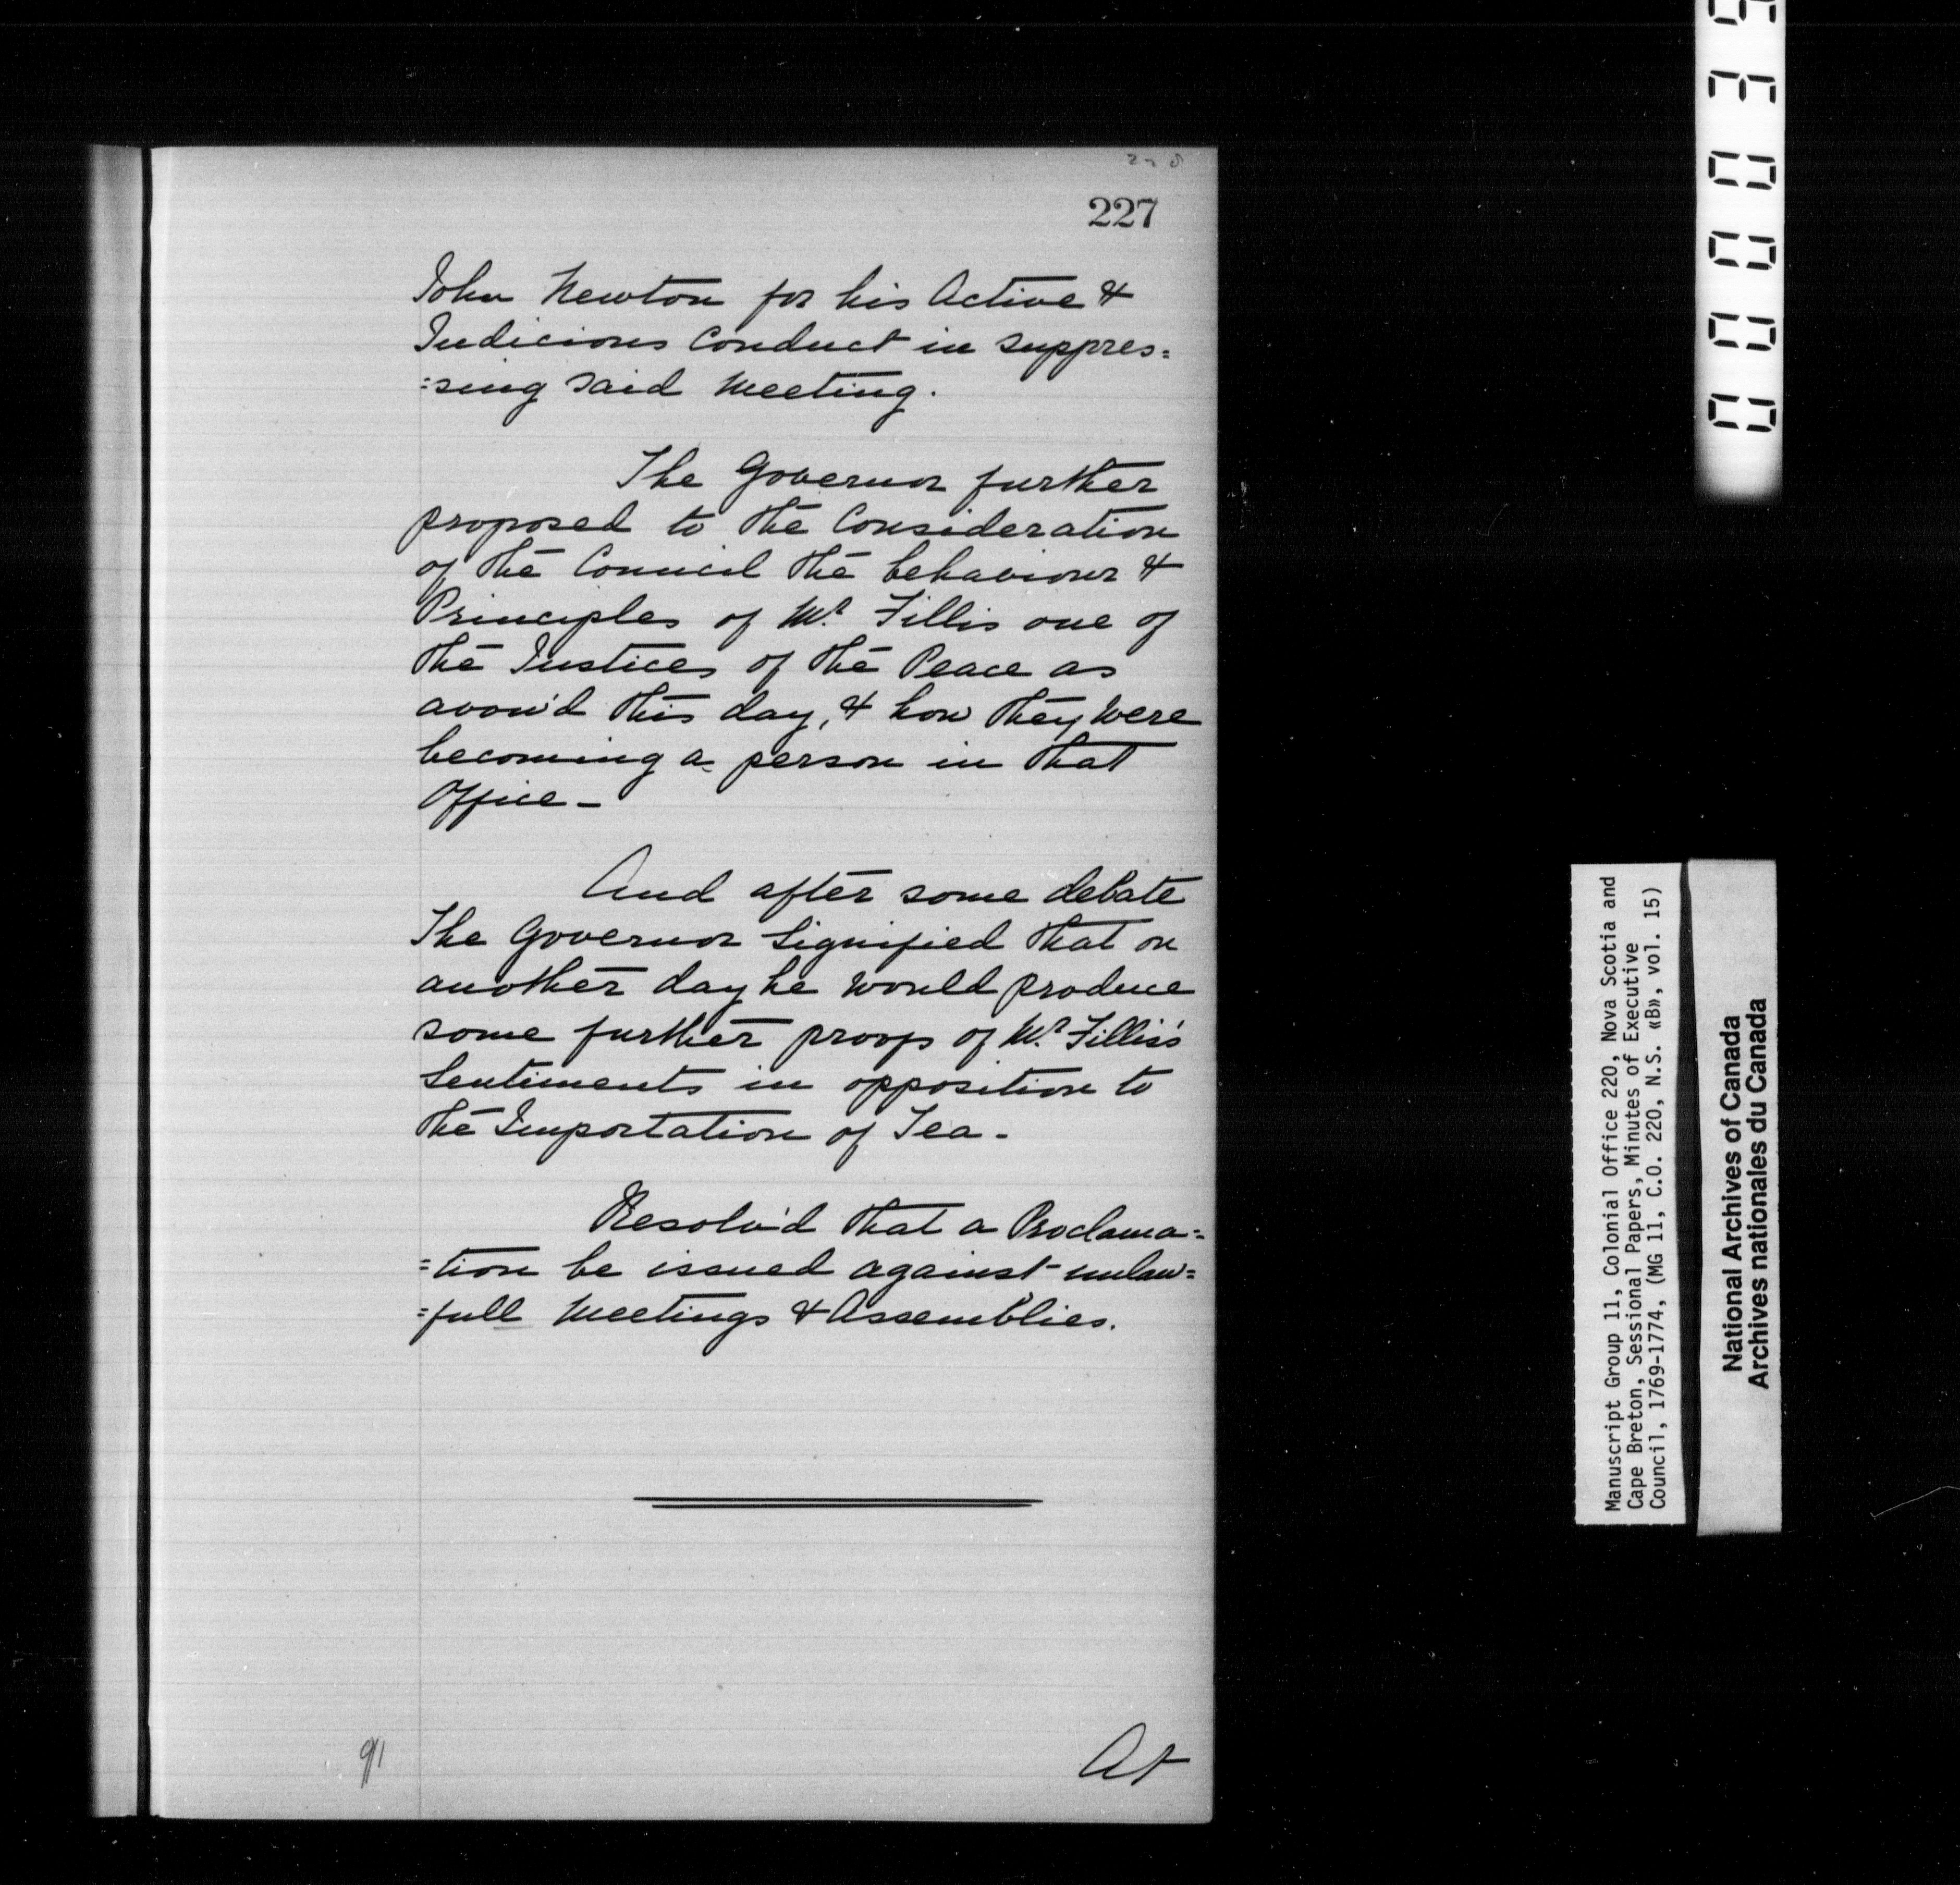 227
John Newton for his Active &
Judicious Conduct in suppres=
=sing said Meeting.
The Governor further
proposed to the Consideration
of the Council the behaviour &
Principles of Mr. Fillis one of
the Justices of the Peace as
avow'd this day, & how they were
becoming a person in that
Office –
And after some debate
The Governor Signified that on
another day he would produce
some further proofs of Mr. Fillis's
Sentiments in opposition to
the Importation of Tea –
Resolv'd that a Proclama=
=tion be issued against unlaw=
=full Meetings & Assemblies.
At
Manuscript Group 11, Colonial Office 220, Nova Scotia and
Cape Breton, Sessional Papers, Minutes of Executive
Council, 1769-1774, (MG 11, C.O. 220, N.S. «B», vol. 15)
National Archives of Canada
Archives nationales du Canada